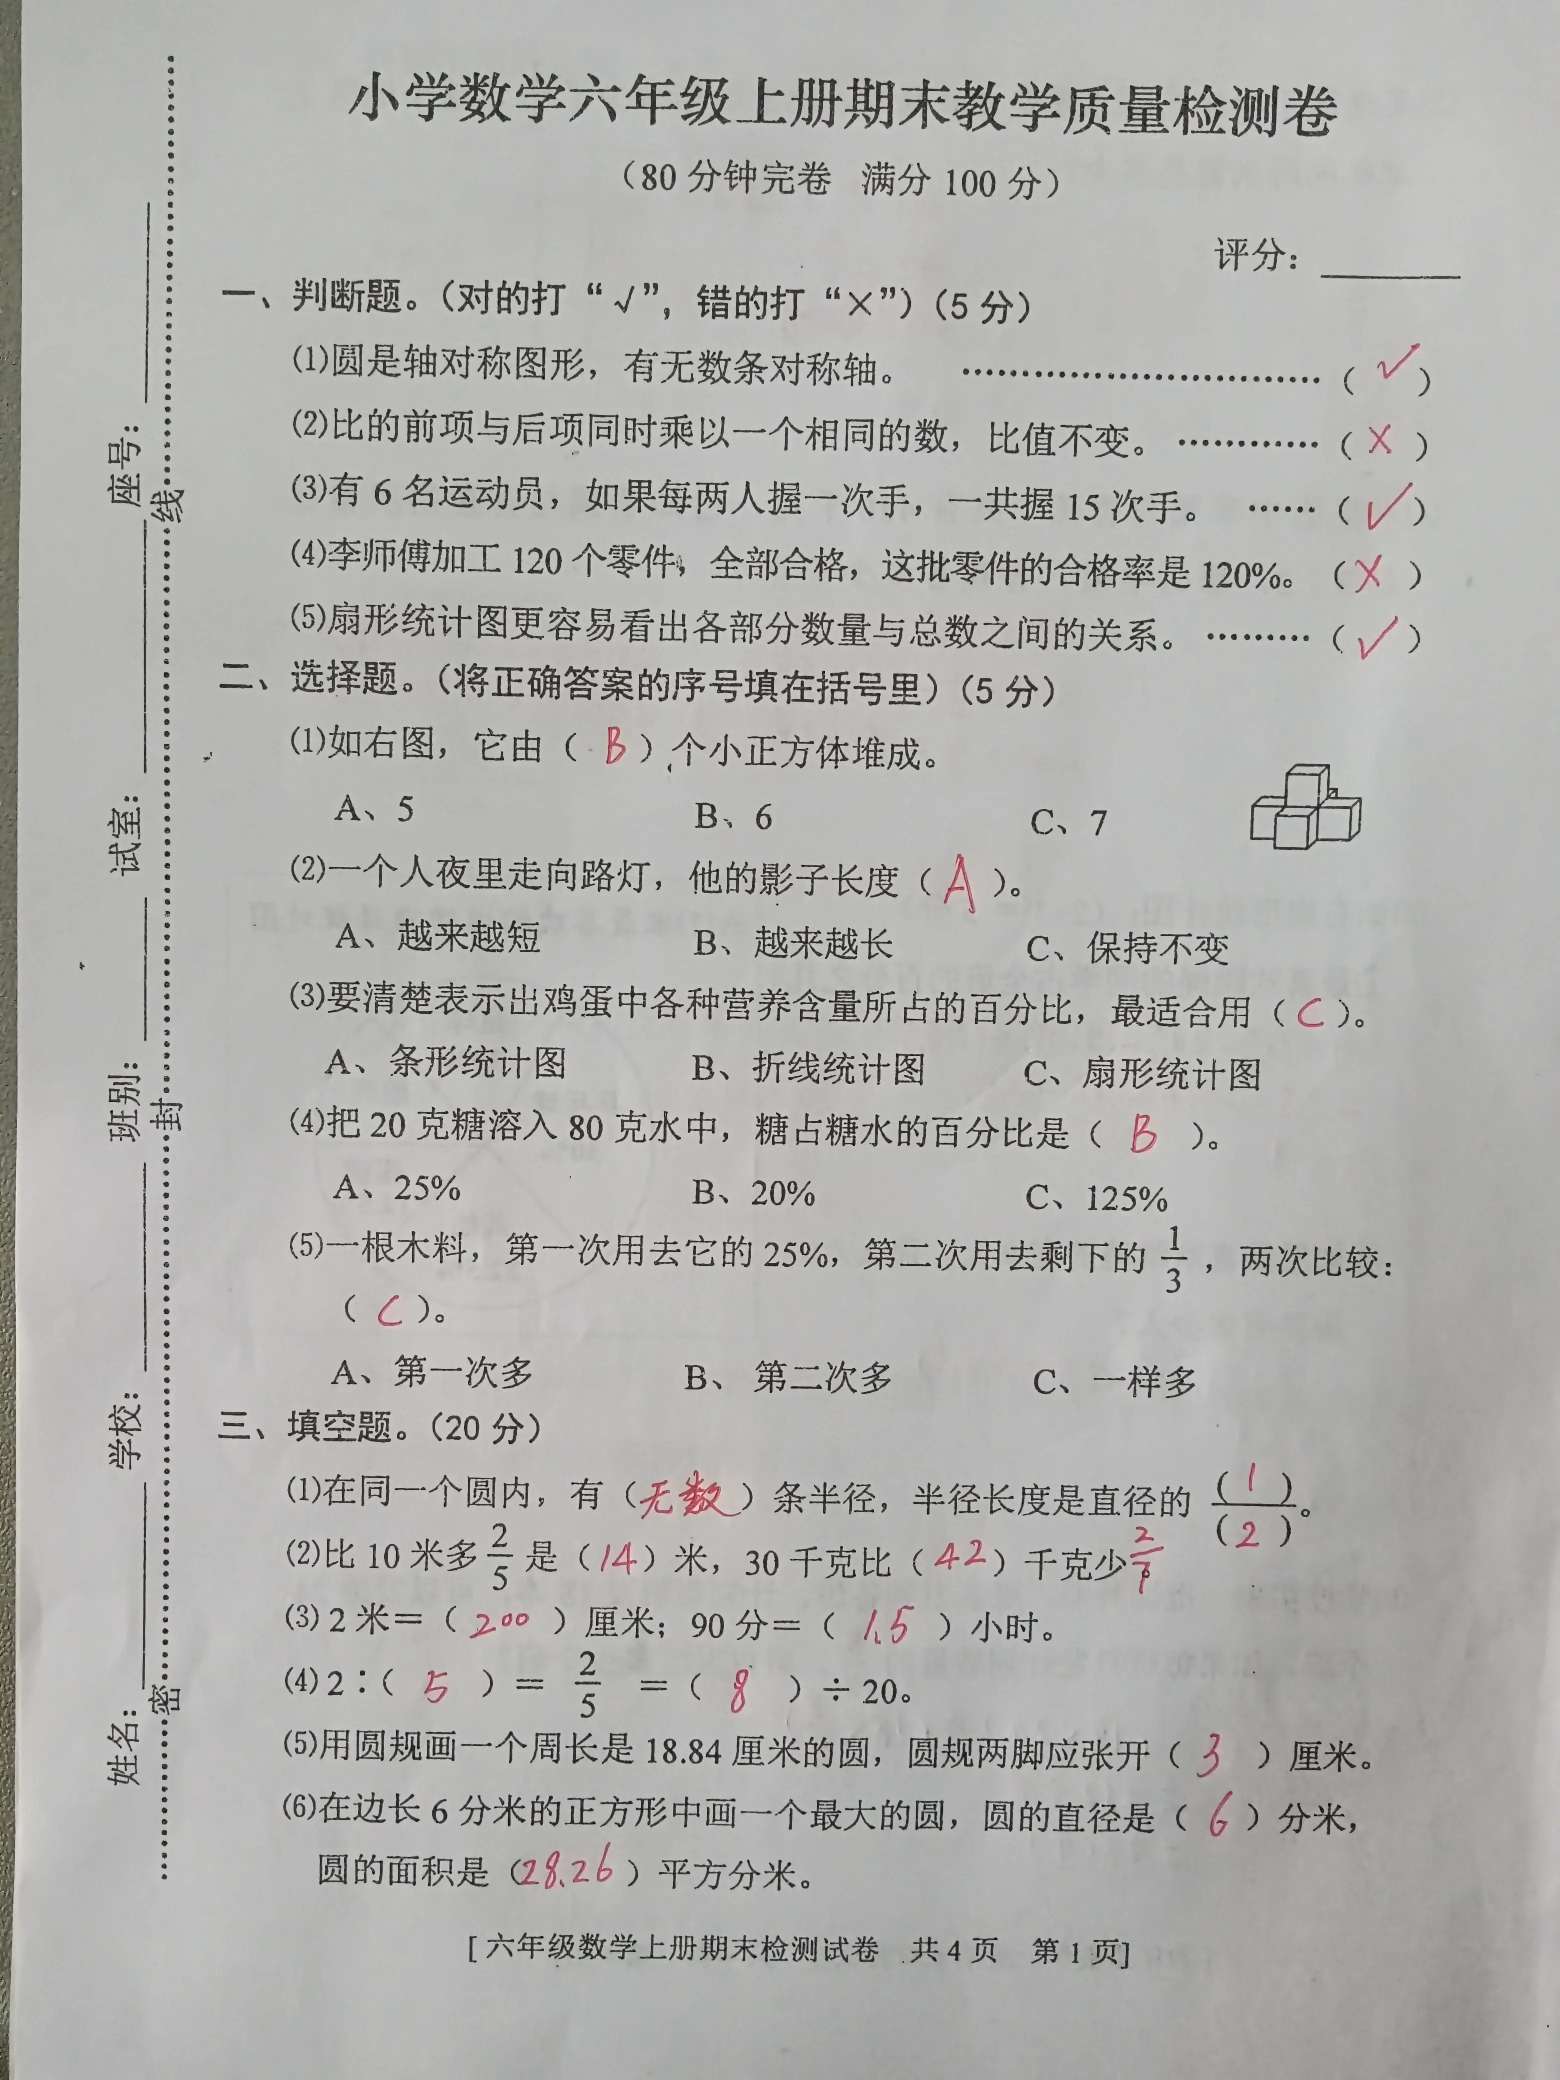 小学数学六年级上册期末教学质量检测卷
（80分钟完卷 满分100分）
评分：
一、判断题。（对的打“√”，错的打“×”）（5分）
⑴圆是轴对称图形，有无数条对称轴。 ……………………………（ √ ）
⑵比的前项与后项同时乘以一个相同的数，比值不变。 …………（ X ）
⑶有6名运动员，如果每两人握一次手，一共握15次手。 ……（ √ ）
⑷李师傅加工120个零件，全部合格，这批零件的合格率是120%。（ X ）
⑸扇形统计图更容易看出各部分数量与总数之间的关系。 ………（ √ ）
二、选择题。（将正确答案的序号填在括号里）（5分）
⑴如右图，它由（ B ）个小正方体堆成。
A、5 B、6 C、7
⑵一个人夜里走向路灯，他的影子长度（ A ）。
A、越来越短 B、越来越长 C、保持不变
⑶要清楚表示出鸡蛋中各种营养含量所占的百分比，最适合用（ C ）。
A、条形统计图 B、折线统计图 C、扇形统计图
⑷把20克糖溶入80克水中，糖占糖水的百分比是（ B ）。
A、25% B、20% C、125%
⑸一根木料，第一次用去它的25%，第二次用去剩下的1/3，两次比较：
（ C ）。
A、第一次多 B、第二次多 C、一样多
三、填空题。（20分）
⑴在同一个圆内，有（无数）条半径，半径长度是直径的（1）/（2）。
⑵比10米多2/5是（14）米，30千克比（42）千克少2/7。
⑶2米＝（200）厘米；90分＝（1.5）小时。
⑷2∶（ 5 ）＝2/5＝（ 8 ）÷20。
⑸用圆规画一个周长是18.84厘米的圆，圆规两脚应张开（ 3 ）厘米。
⑹在边长6分米的正方形中画一个最大的圆，圆的直径是（ 6 ）分米，
圆的面积是（28.26）平方分米。
[六年级数学上册期末检测试卷 共4页 第1页]
姓名： 学校： 班别： 试室： 座号：
密 封 线